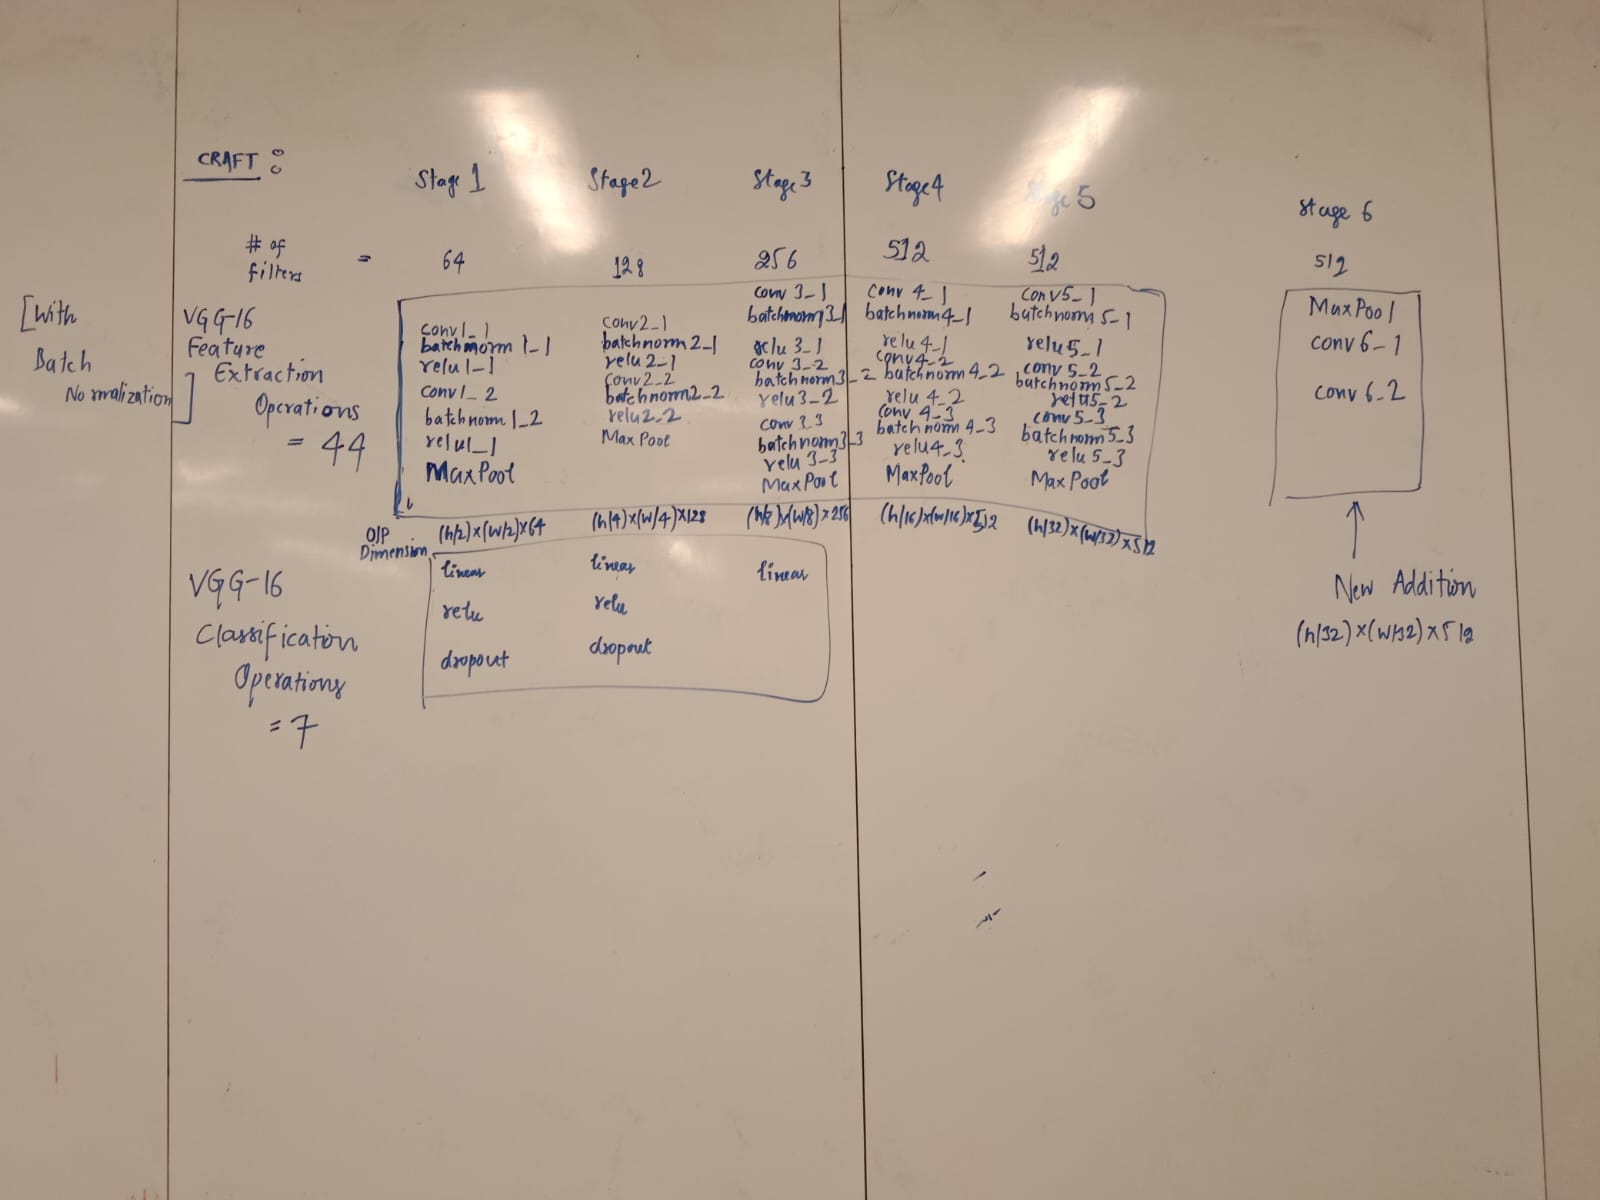 CRAFT :
Stage 1 Stage2 Stage3 Stage4 Stage 5 Stage 6
# of filters = 64 128 256 512 512 512
[With
Batch
Normalization]
VGG-16
Feature
Extraction
Operations
= 44
conv1_1
batchnorm 1_1
relu1_1
conv1_2
batchnorm1_2
relu1_1
MaxPool
conv2_1
batchnorm2_1
relu2_1
conv2_2
batchnorm2_2
relu2_2
MaxPool
conv 3_1
batchnorm3_1
relu 3_1
conv 3_2
batchnorm3_2
relu3_2
conv 3_3
batchnorm3_3
relu 3_3
MaxPool
conv 4_1
batchnorm4_1
relu 4_1
conv4_2
batchnorm4_2
relu 4_2
conv 4_3
batchnorm 4_3
relu4_3
MaxPool
conv5_1
batchnorm 5_1
relu5_1
conv 5_2
batchnorm5_2
relu5_2
conv5_3
batchnorm5_3
relu 5_3
MaxPool
MaxPool
conv6_1
conv 6_2
O/P
Dimension
(h/2)×(w/2)×64 (h/4)×(w/4)×128 (h/8)×(w/8)×256 (h/16)×(w/16)×512 (h/32)×(w/32)×512
New Addition
(h/32)×(w/32)×512
VGG-16
Classification
Operations
= 7
linear linear linear
relu relu
dropout dropout